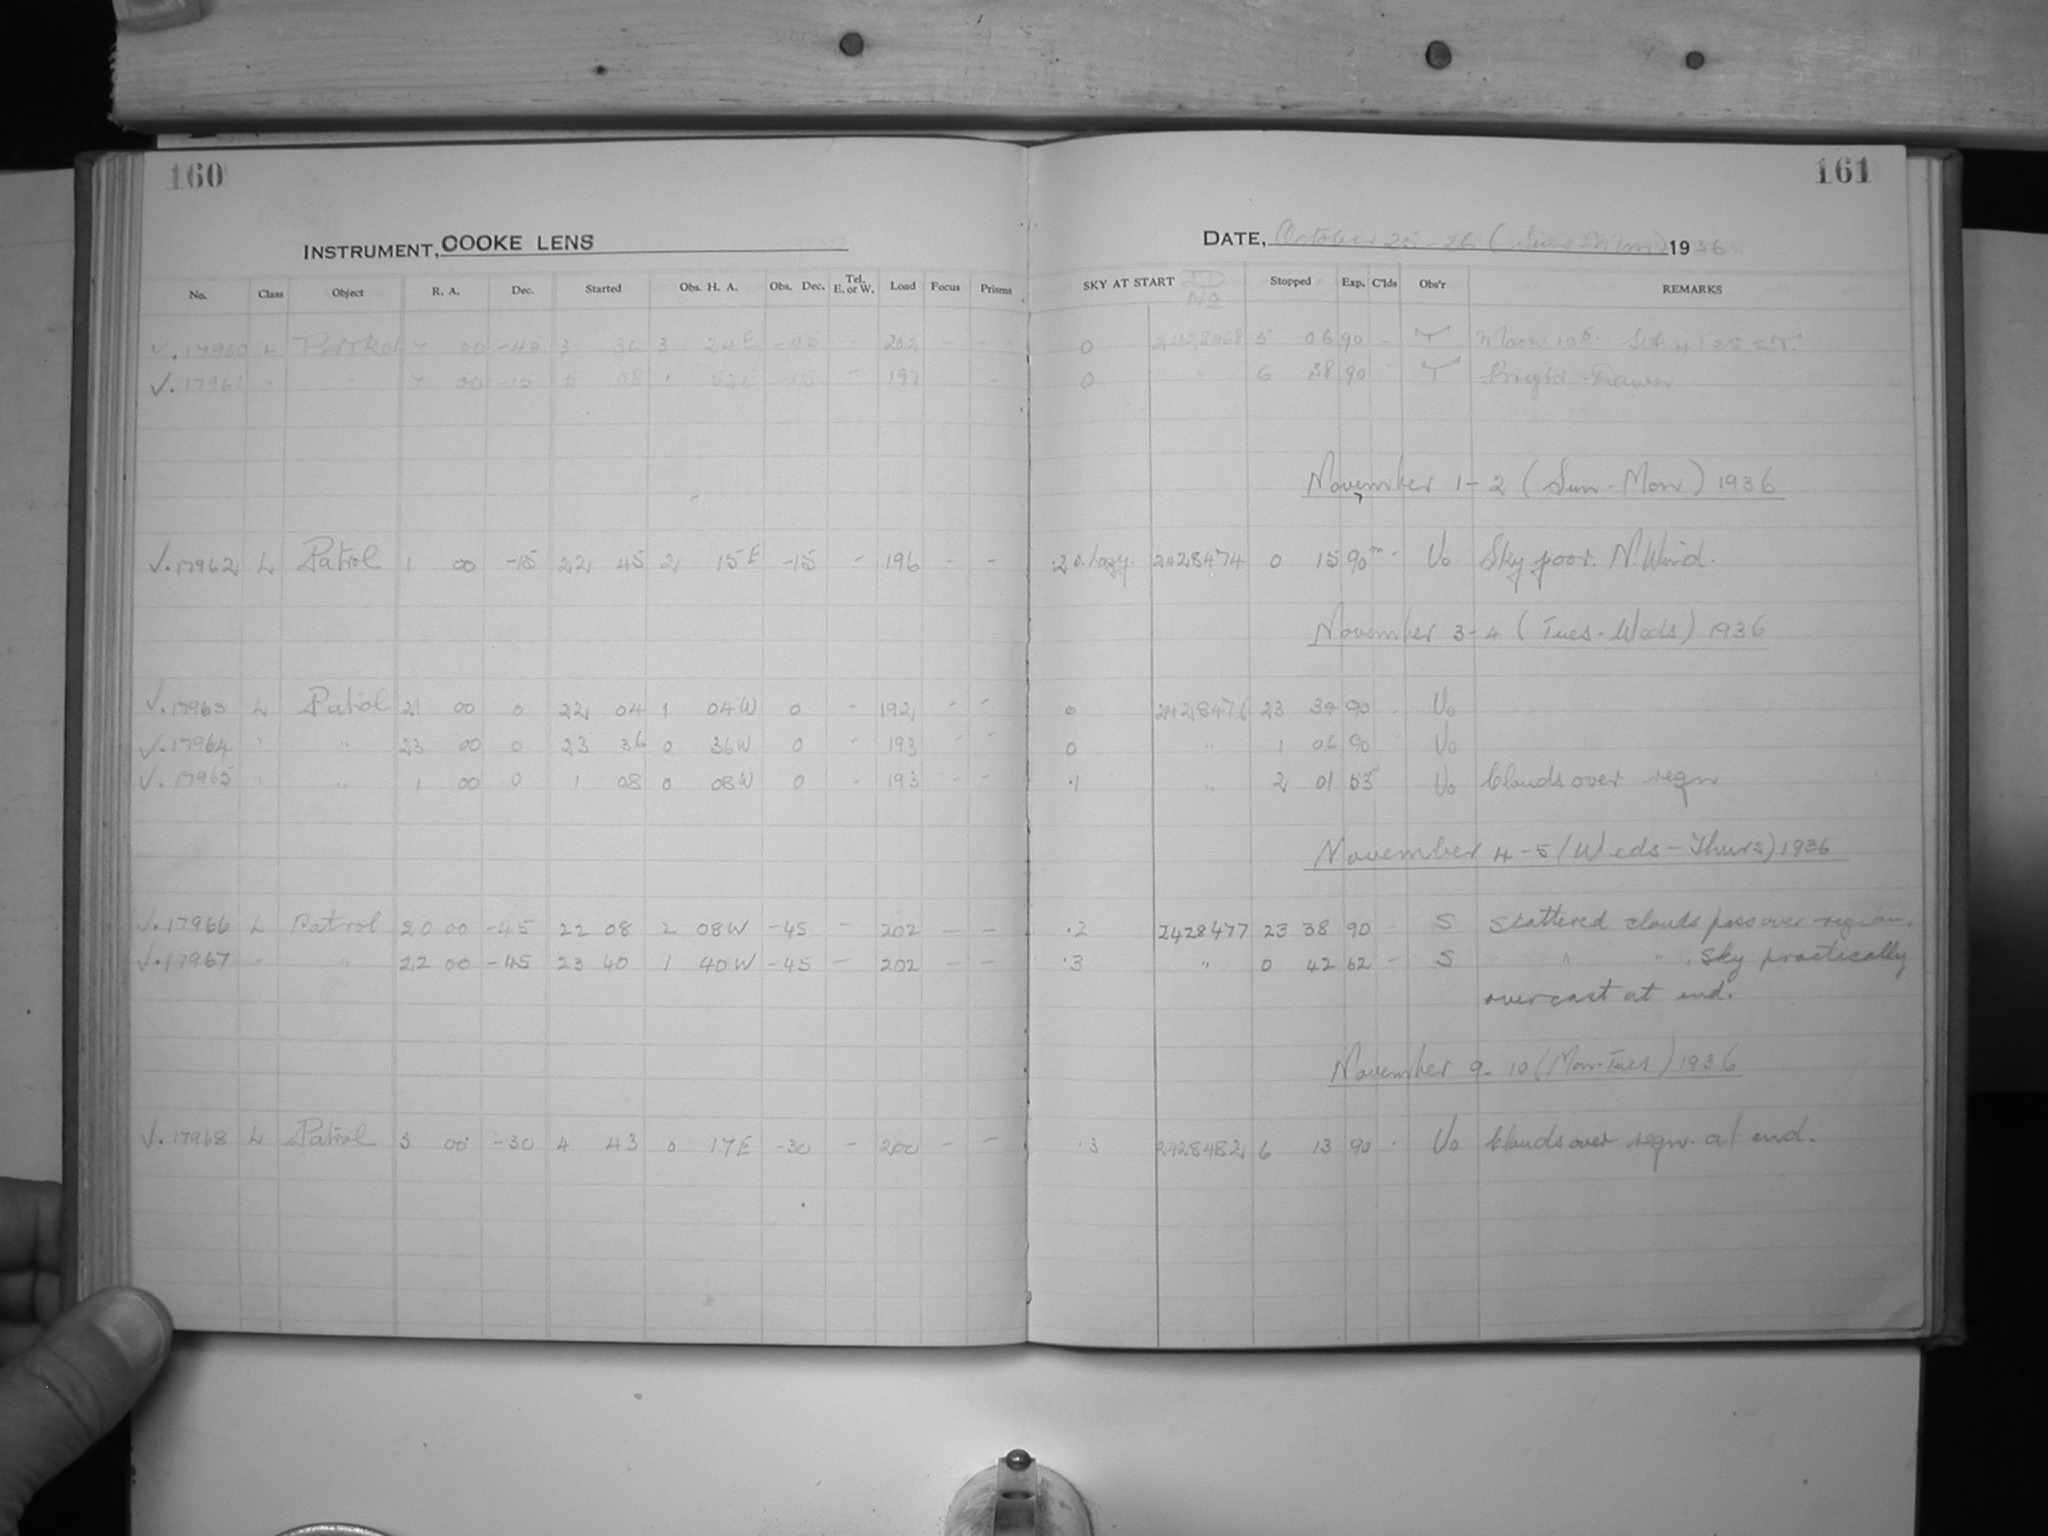 160
INSTRUMENT, COOKE LENS
No. Class Object R. A. Dec. Started Obs. H. A. Obs. Dec. Tel. E. or W. Load Focus Prisms
√. 17960 L Patrol 7 00 -45 3 36 3 24E -45 - 202 - -
√. 17961 " " 7 00 -15 5 08 1 52E -15 - 197 - -
√. 17962 L Patrol 1 00 -15 22 45 2 15E -15 - 196 - -
√. 17963 L Patrol 21 00 0 22 04 1 04W 0 - 192 - -
√. 17964 " " 23 00 0 23 36 0 36W 0 - 193 - -
√. 17965 " " 1 00 0 1 08 0 08W 0 - 193 - -
√. 17966 L Patrol 20 00 -45 22 08 2 08W -45 - 202 - -
√. 17967 " " 22 00 -45 23 40 1 40W -45 - 202 - -
√. 17968 L Patrol 5 00 -30 4 43 0 17E -30 - 200 - -
161
DATE, October 25-26 (Sun-Mon) 1936
SKY AT START JD No Stopped Exp. C'lds Obs'r REMARKS
0 2428468 5 06 90 - T Moon
0 " 6 38 90 - T Bright Dawn
November 1-2 (Sun-Mon) 1936
.2 hazy. 2428474 0 15 90m - Vo Sky poor. N. Wind.
November 3-4 (Tues-Weds) 1936
0 2428476 23 34 90 - Vo
0 " 1 06 90 Vo
.1 " 2 01 53 Vo Clouds over regn
November 4-5 (Weds-Thurs) 1936
.2 2428477 23 38 90 - S Scattered clouds pass over region.
.3 " 0 42 62 - S " " . Sky practically
overcast at end.
November 9-10 (Mon-Tues) 1936
.3 2428482 6 13 90 - Vo Clouds over regn. at end.